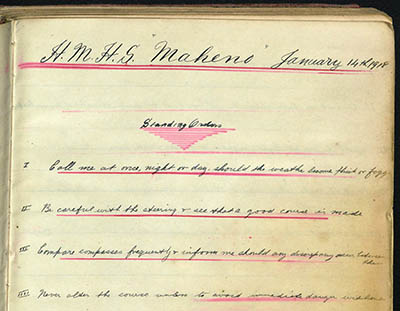 H.M.H.S. Maheno January 14th 1918
Standing Orders
I Call me at once, night or day, should the weather become thick or foggy
II Be careful with the steering & see that a good course is made
III Compare compasses frequently & inform me should any discrepancy occur between
them
IIII Never alter the course unless to avoid immediate danger without